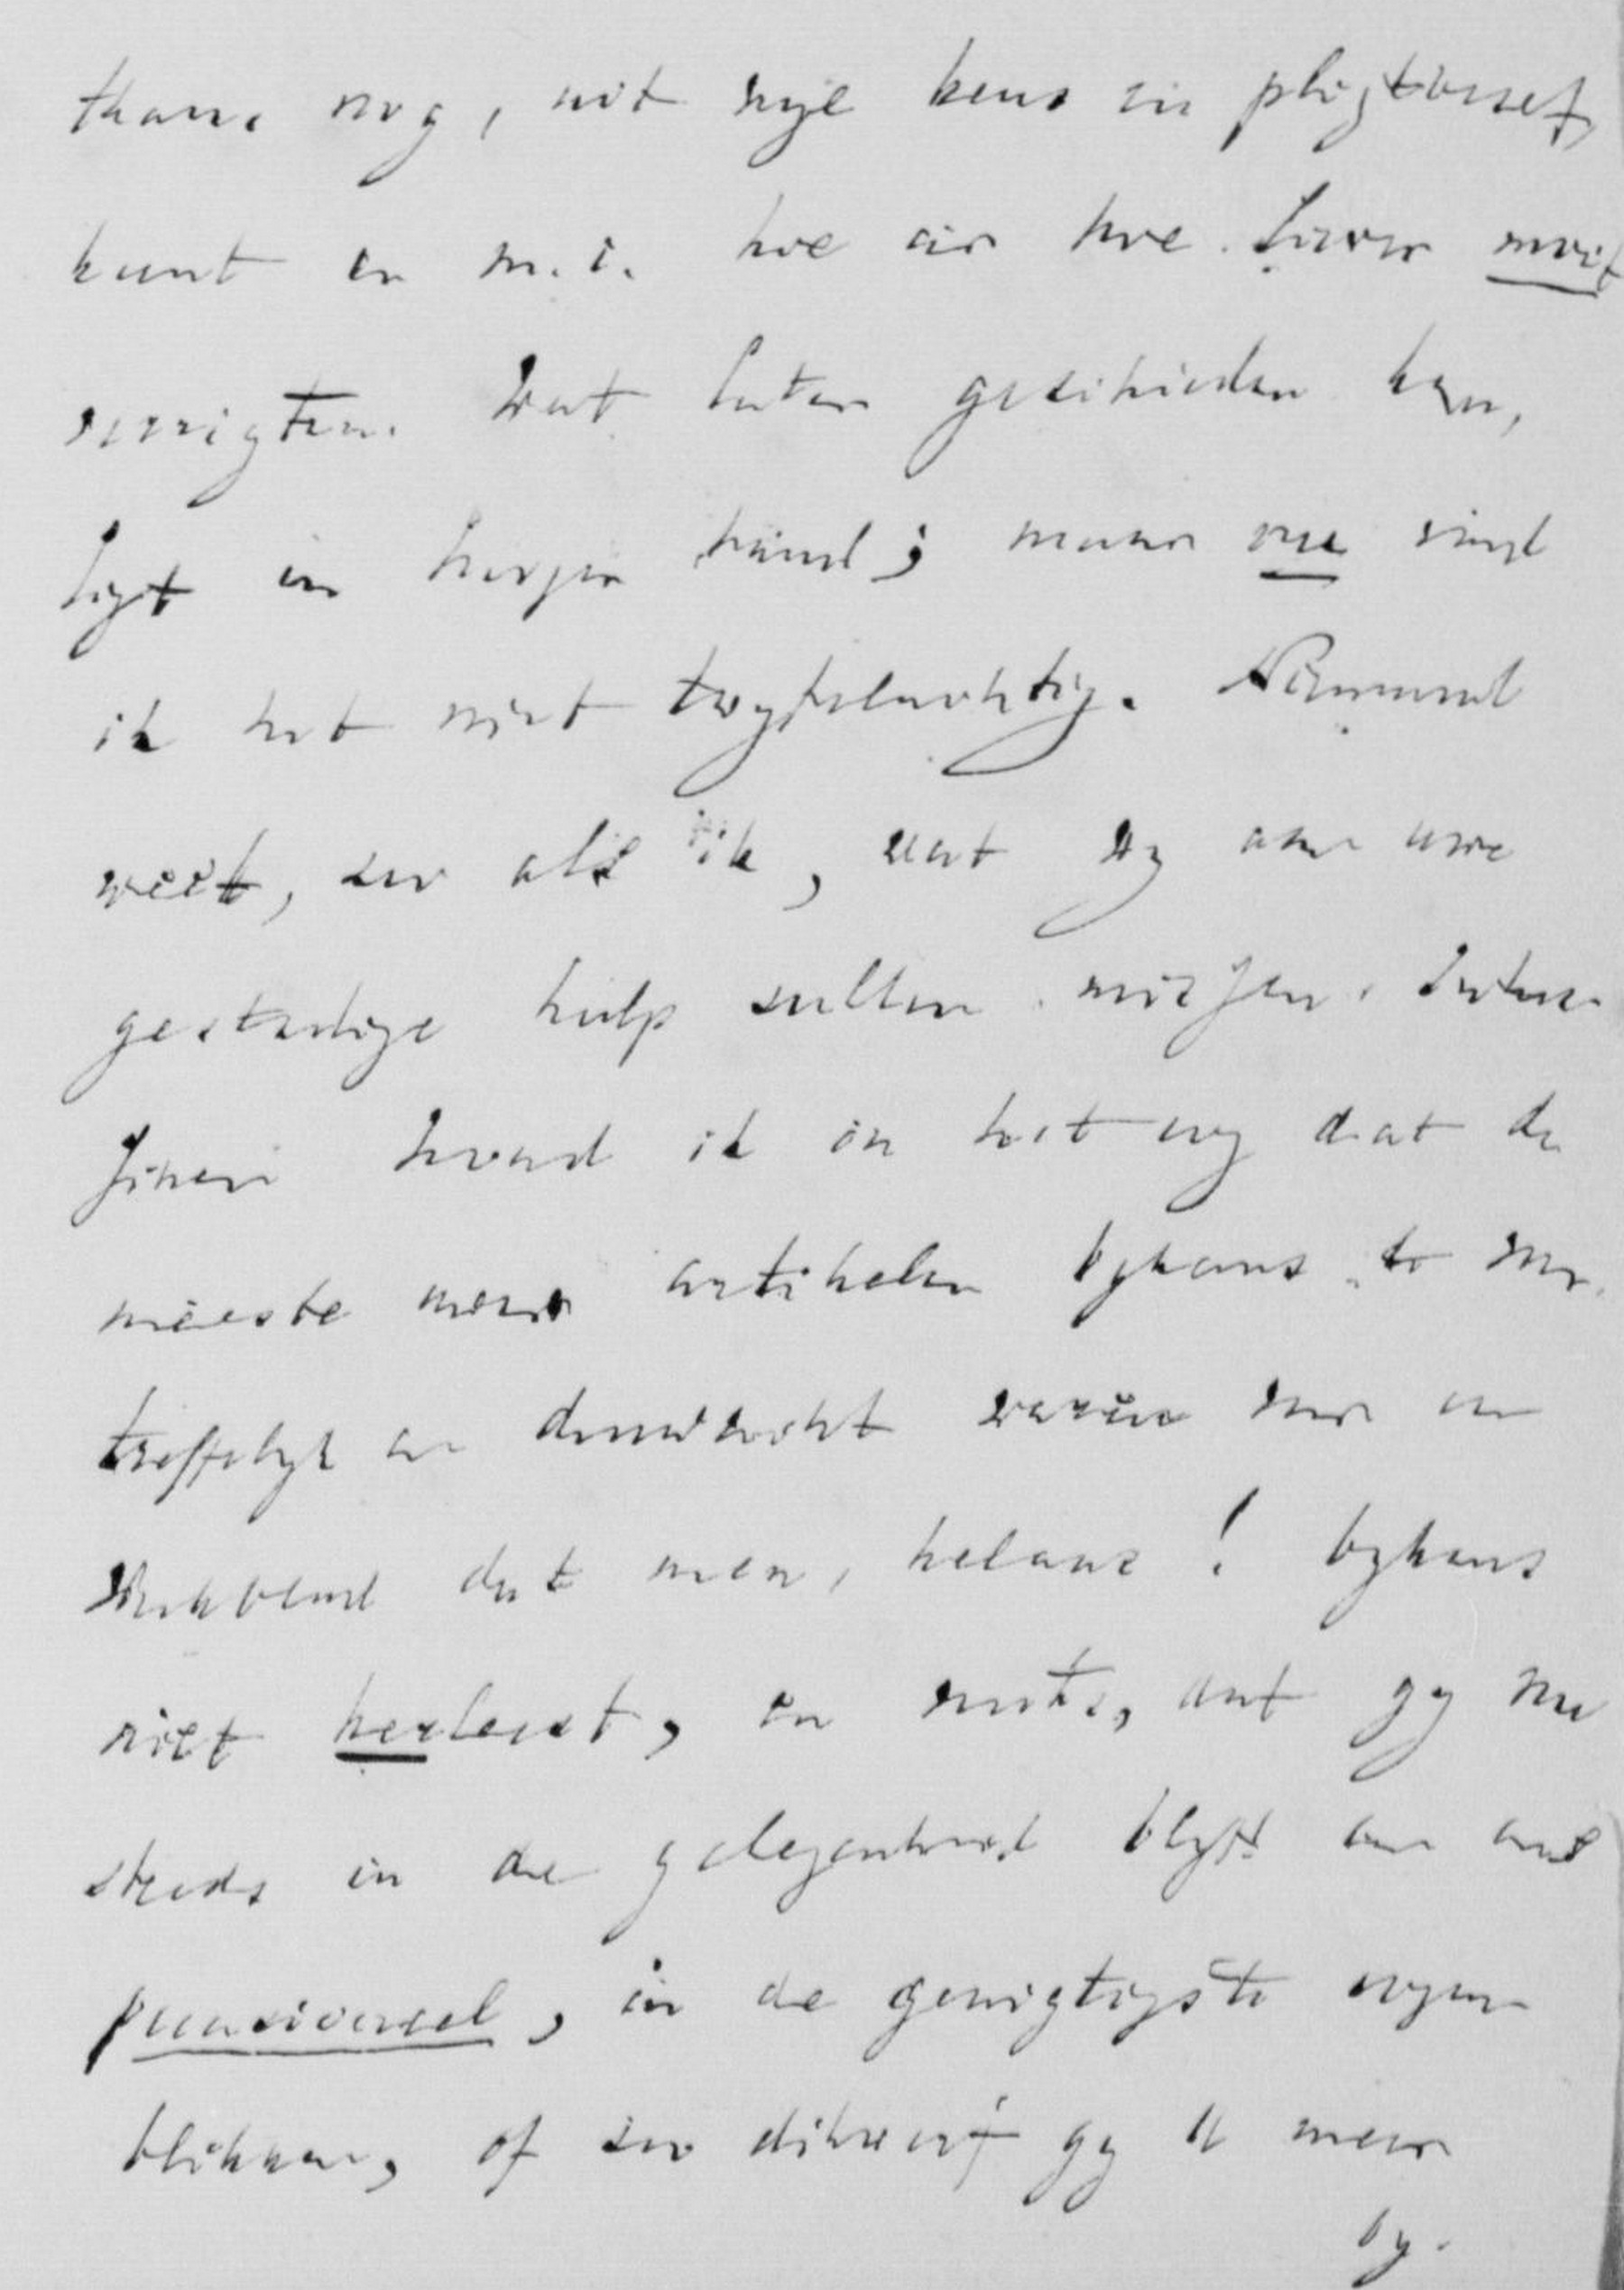 thans nog, uit vrije keus en pligtbesef,
kunt en m.i. hoe eer hoe liever moet
verrigten. Wat later geschieden kan,
ligt in hooger hand; maar nu vind
ik het niet twyfelachtig. Niemand
weet, zoo als ik, wat wy aan uwe
gestadige hulp zullen missen. Inlus-
schen houd ik in het oog dat de
meeste uwer artikelen bykans te voor-
treffelyk en doorwrocht waren voor een
Weekblad dat men, helaas! bykans
niet herleest, en mits, dat gy nu
steeds in de gelegenheid blyft om ons
pensioneel, in de gewigtigste oogen-
blikken, of zoo dikwerf gy U meer
by-